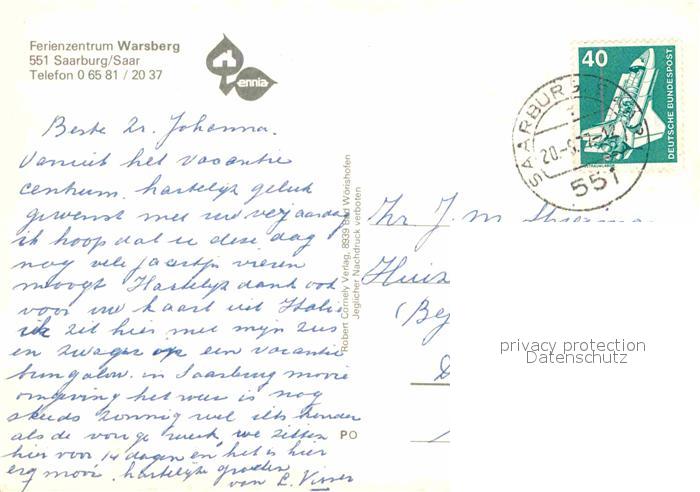 Ferienzentrum Warsberg
551 Saarburg/Saar
Telefon 0 65 81 / 20 37
ennia
40
DEUTSCHE BUNDESPOST
SAARBURG
551
Beste Zr. Johanna.
Vanuit het vacantie
centrum hartelijk geluk
gewenst met uw verjaardag
ik hoop dat u deze dag
nog vele jaartjes vieren
moogt Hartelijk dank ook
voor uw kaart uit Italië
ik zit hier met mijn zus
en zwager op een vacantie
bungalow in Saarburg mooie
omgeving het weer is nog
steeds zonnig wel iets kouder
als de vorige week, we zitten
hier voor 14 dagen en het is hier
erg mooi. hartelijke groeten
van C. Visser
Robert Cornely Verlag, 8939 Bad Wörishofen
Jeglicher Nachdruck verboten
PO
Zr J. M.
Huiz
(Be
D
privacy protection
Datenschutz